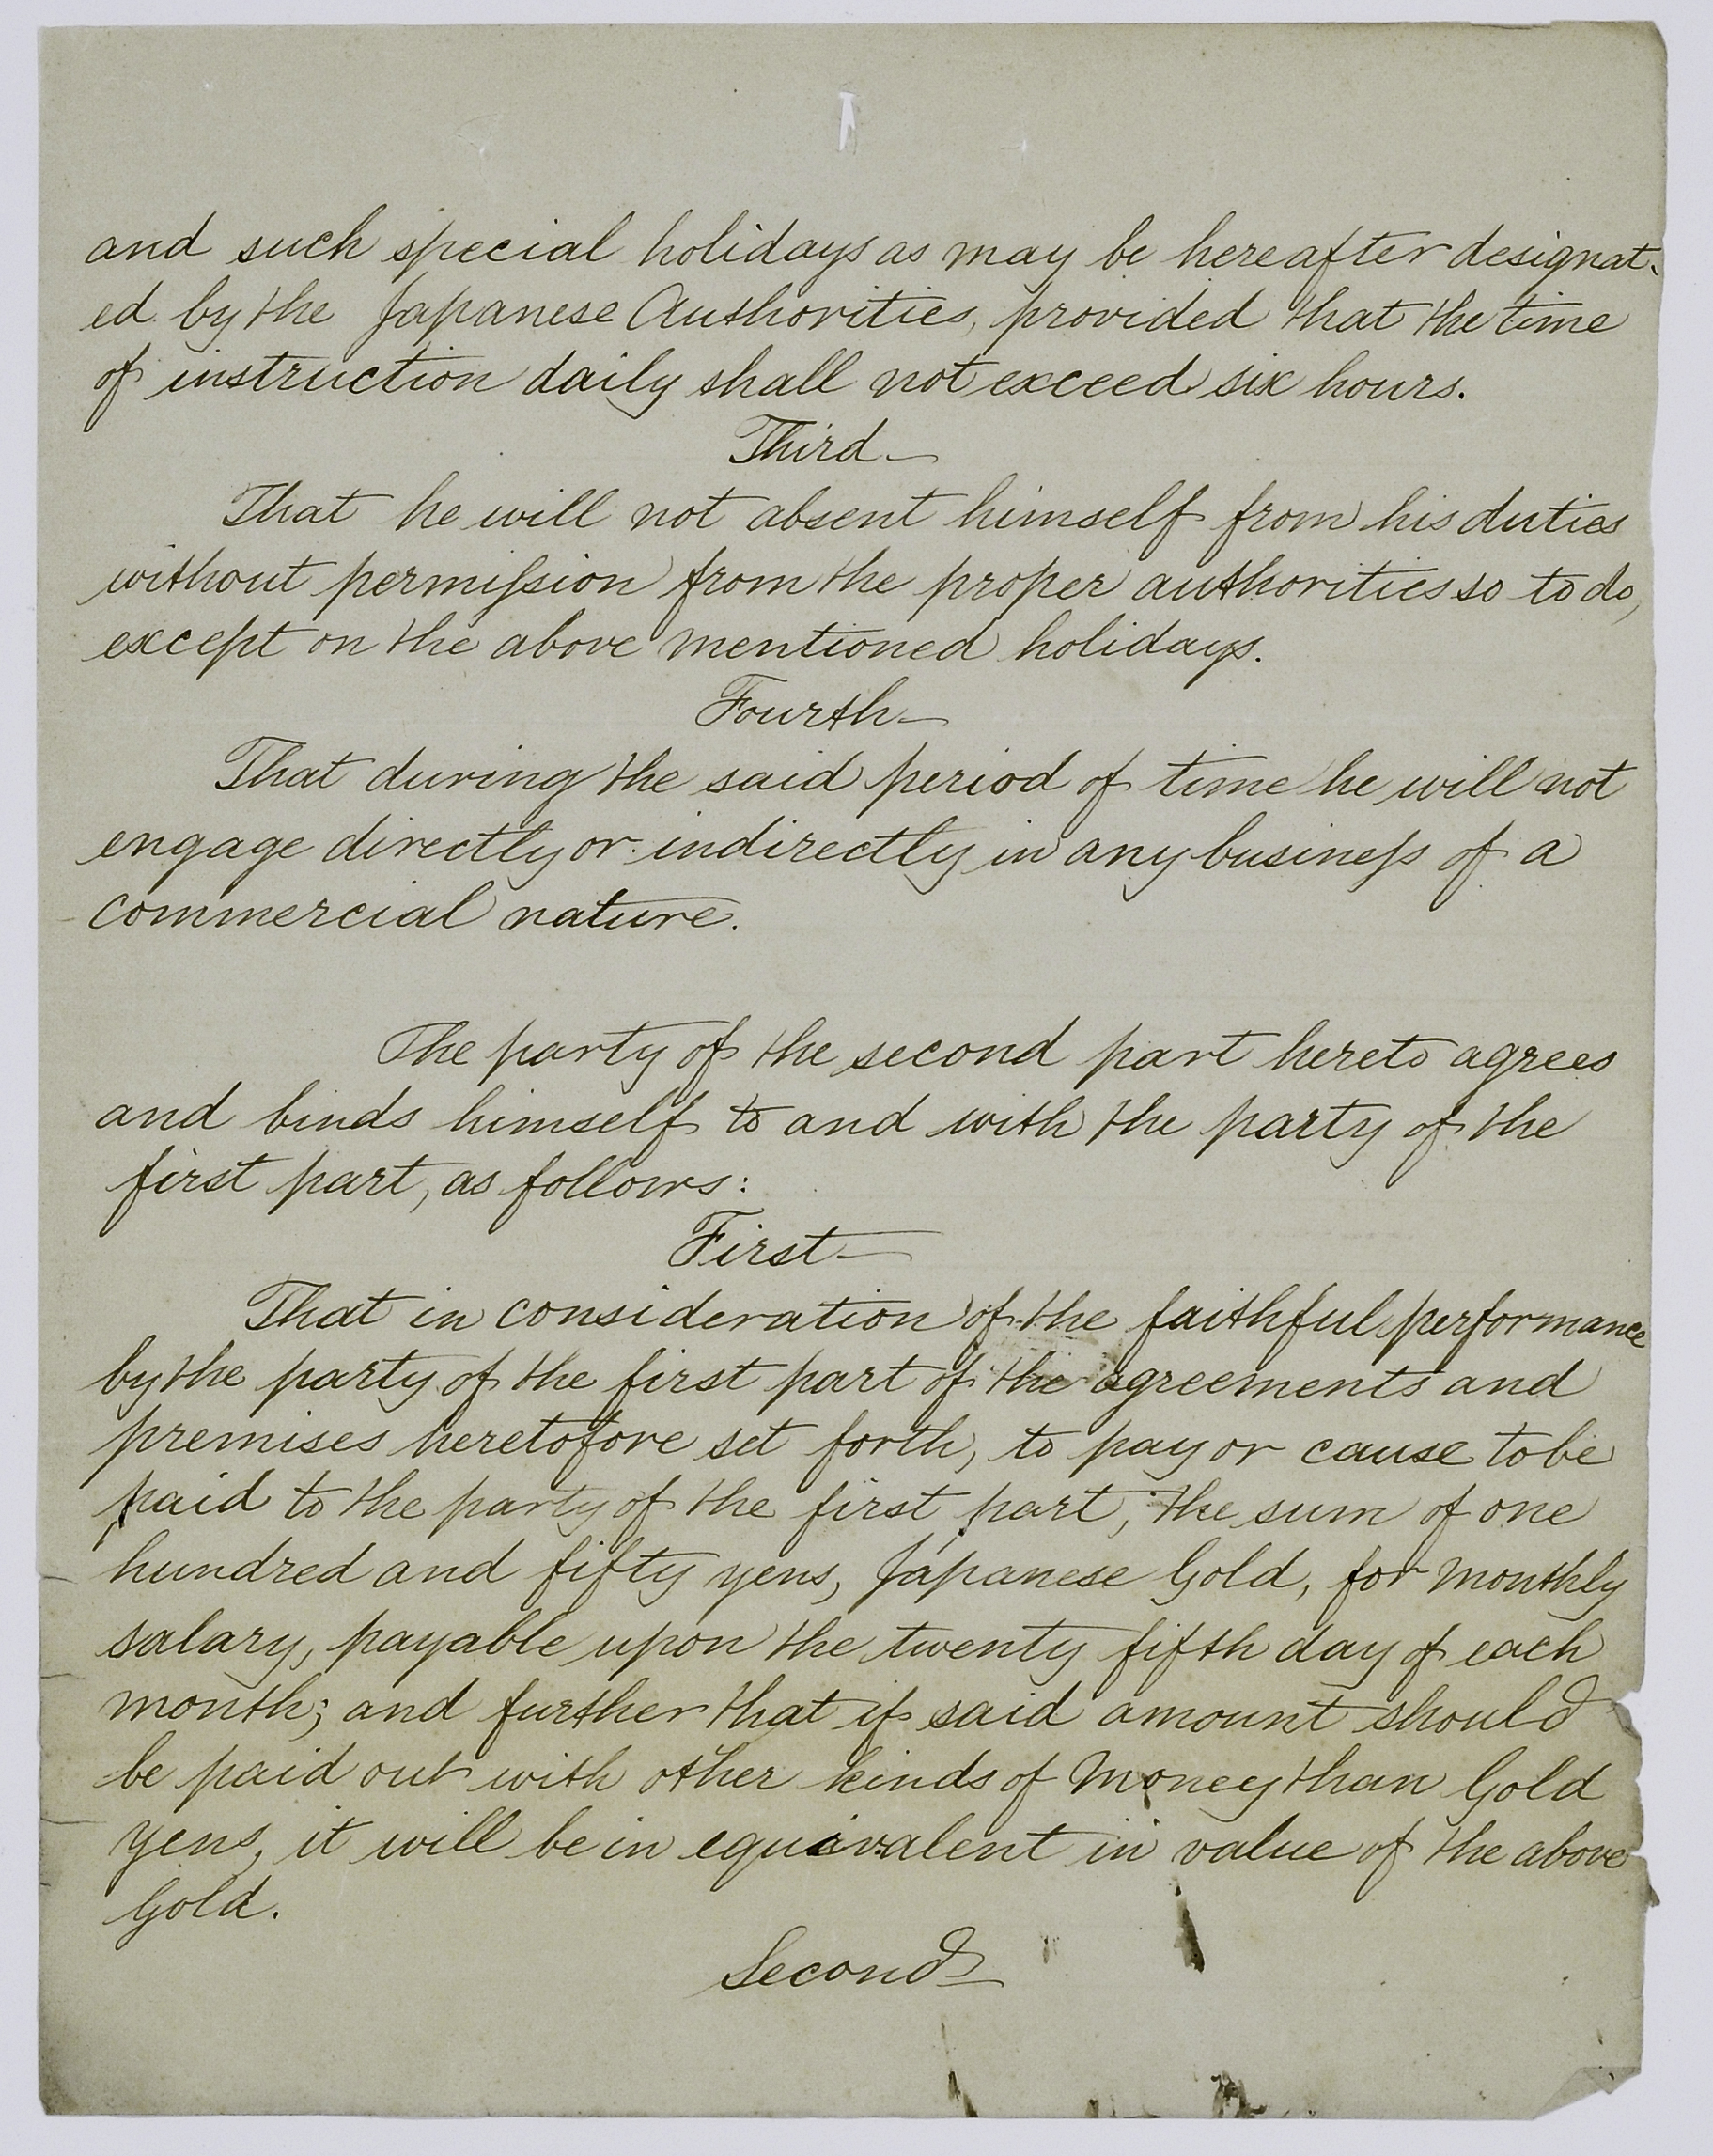 and such special holidays as may be hereafter designat-
ed by the Japanese Authorities, provided that the time
of instruction daily shall not exceed six hours.
Third—
That he will not absent himself from his duties
without permission from the proper authorities so to do,
except on the above mentioned holidays.
Fourth—
That during the said period of time he will not
engage directly or indirectly in any business of a
commercial nature.
The party of the second part hereto agrees
and binds himself to and with the party of the
first part, as follows:
First—
That in consideration of the faithful performance
by the party of the first part of the agreements and
premises heretofore set forth, to pay or cause to be
paid to the party of the first part, the sum of one
hundred and fifty yens, Japanese Gold, for monthly
salary, payable upon the twenty fifth day of each
month; and further that if said amount should
be paid out with other kinds of money than Gold
yens, it will be in equivalent in value of the above
Gold.
Second—